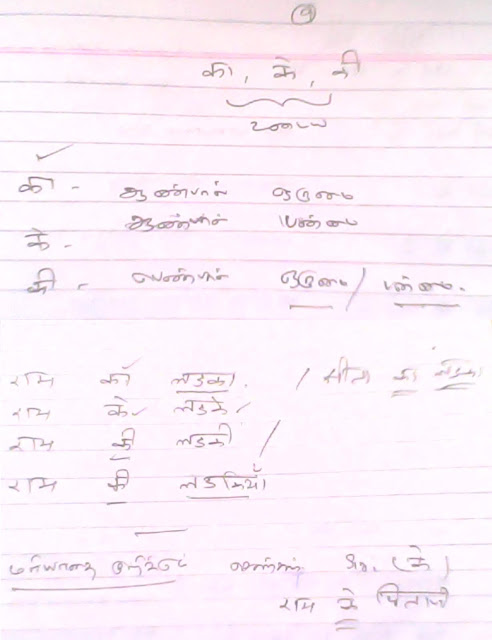 9
का, के, की
உடைய
का - ஆண்பால் ஒருமை
के - ஆண்பால் பன்மை
की - பெண்பால் ஒருமை / பன்மை.
राम का लडका. / सीता का लडका
राम के लडके
राम की लडकी /
राम की लडकियाँ
மரியாதை குறிக்கும் (के)
राम के पिताजी